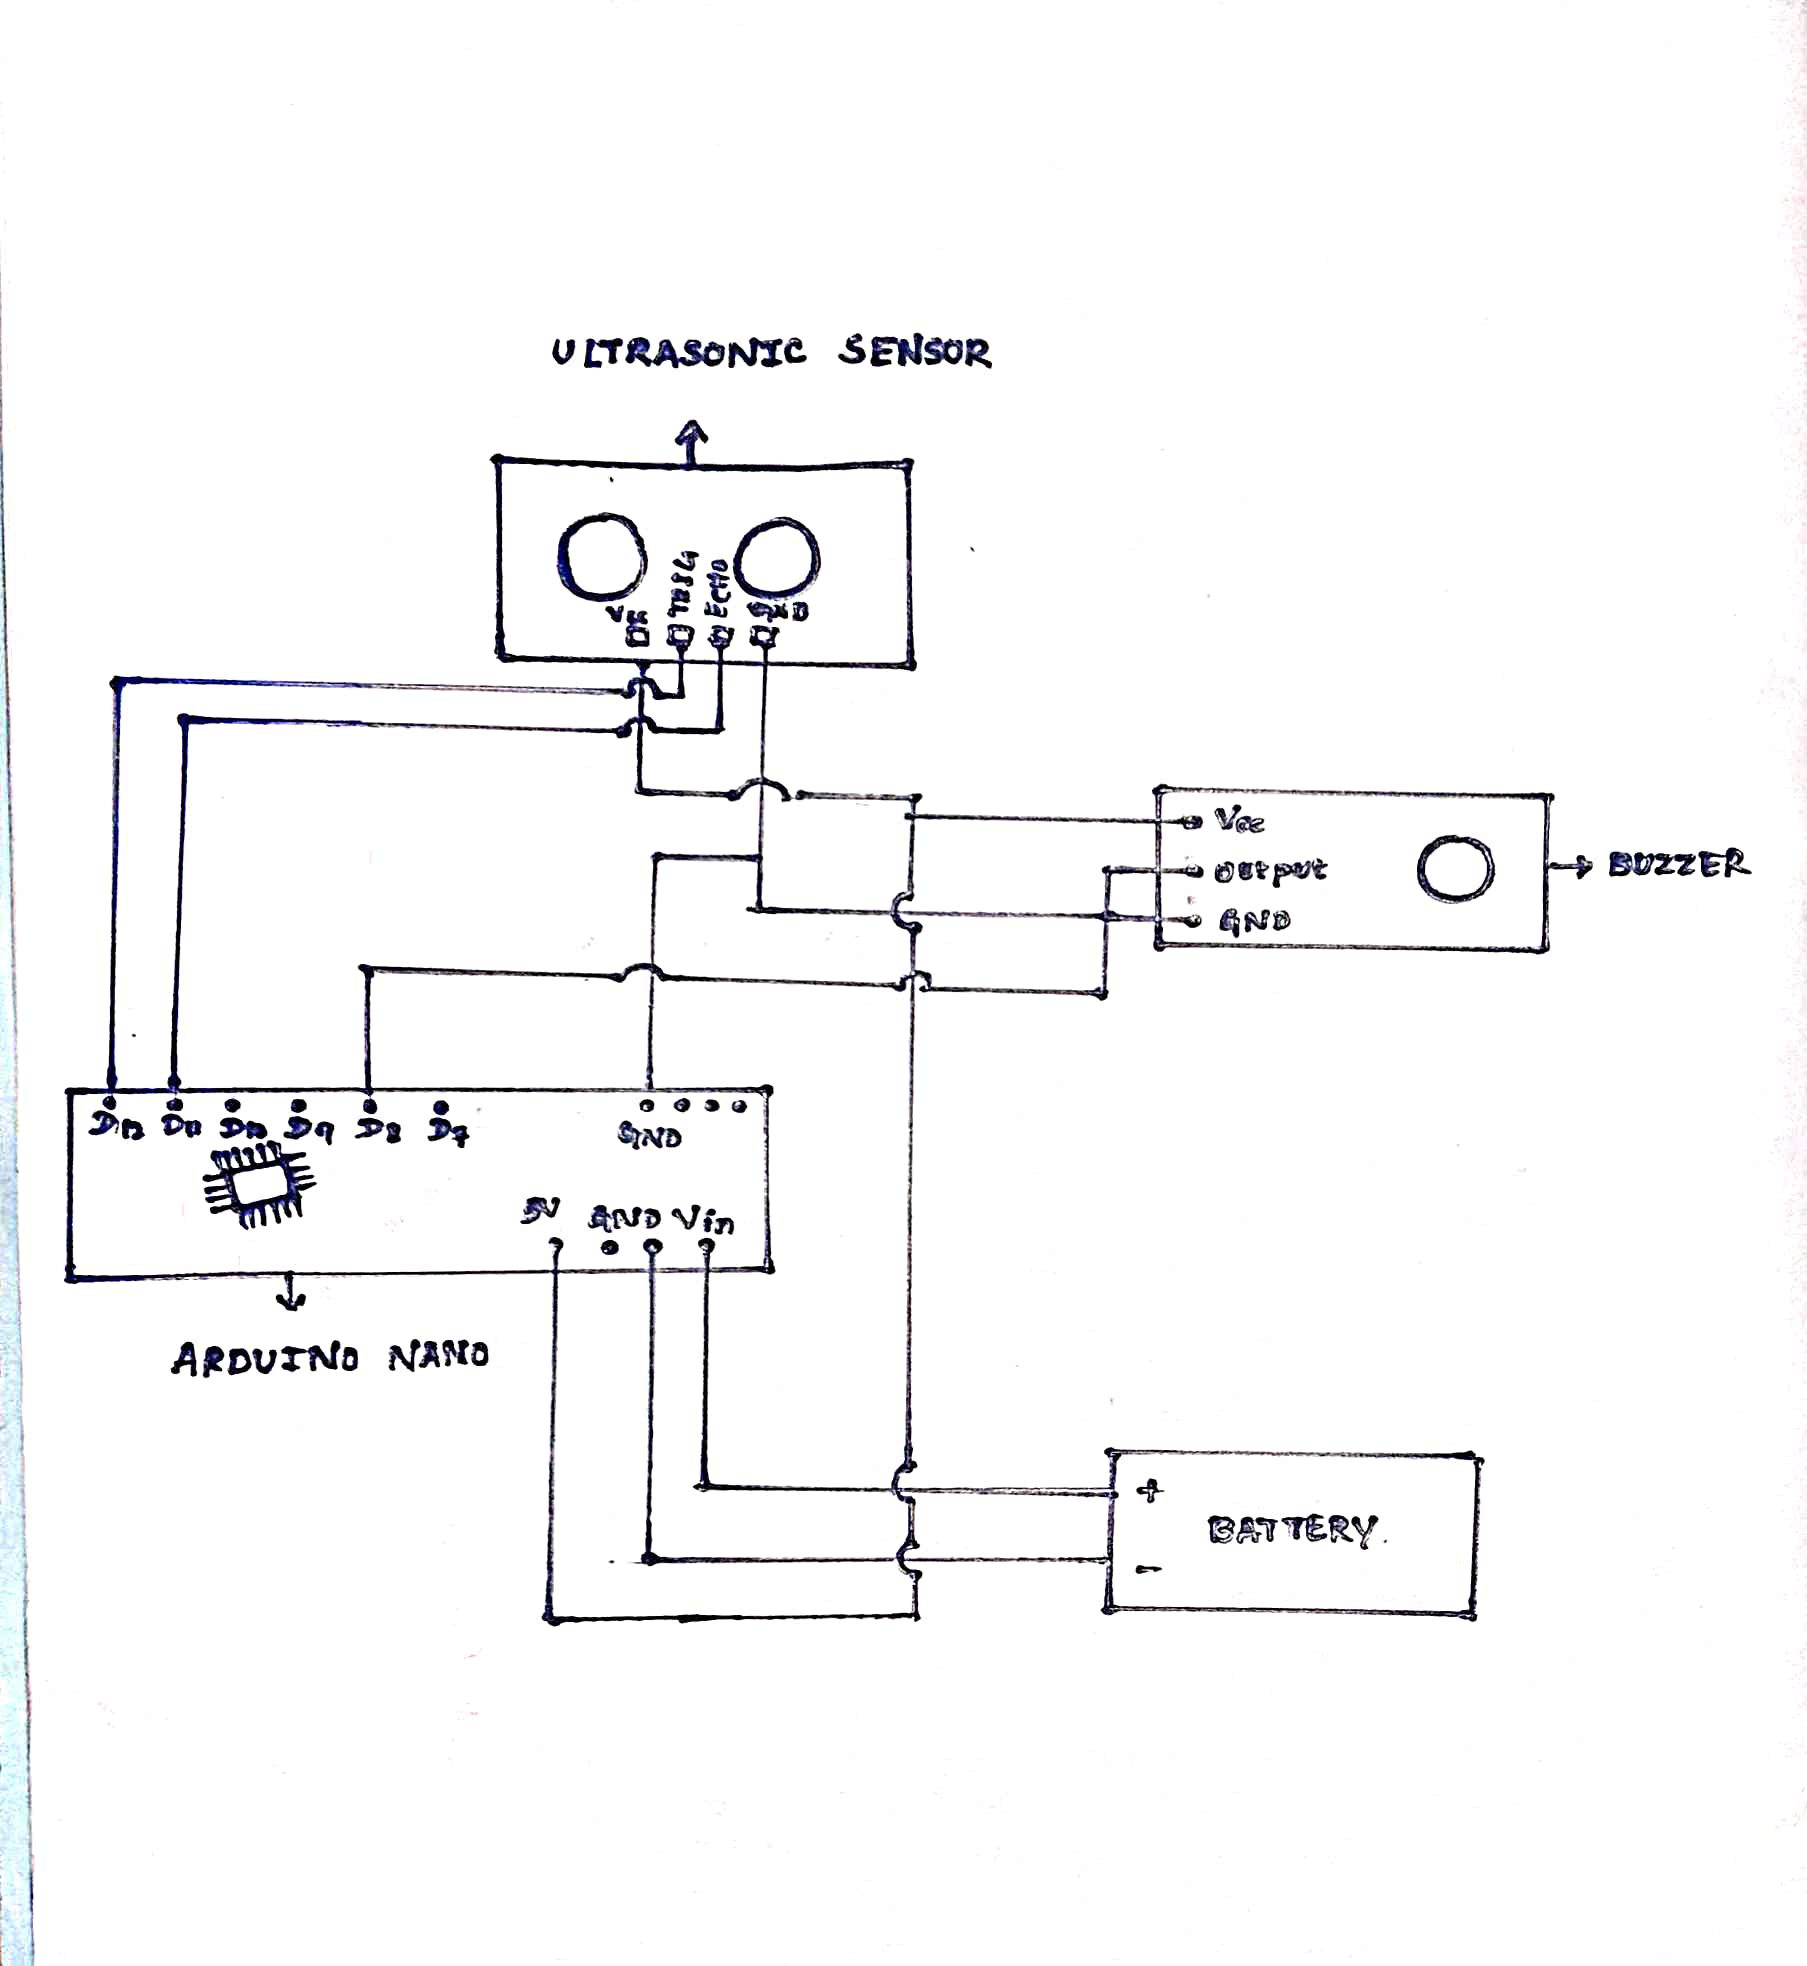 ULTRASONIC SENSOR
Vcc TRIG ECHO GND
Vcc
Output
GND
BUZZER
D12 D11 D10 D9 D8 D7
GND
5V GND Vin
ARDUINO NANO
+
BATTERY.
-